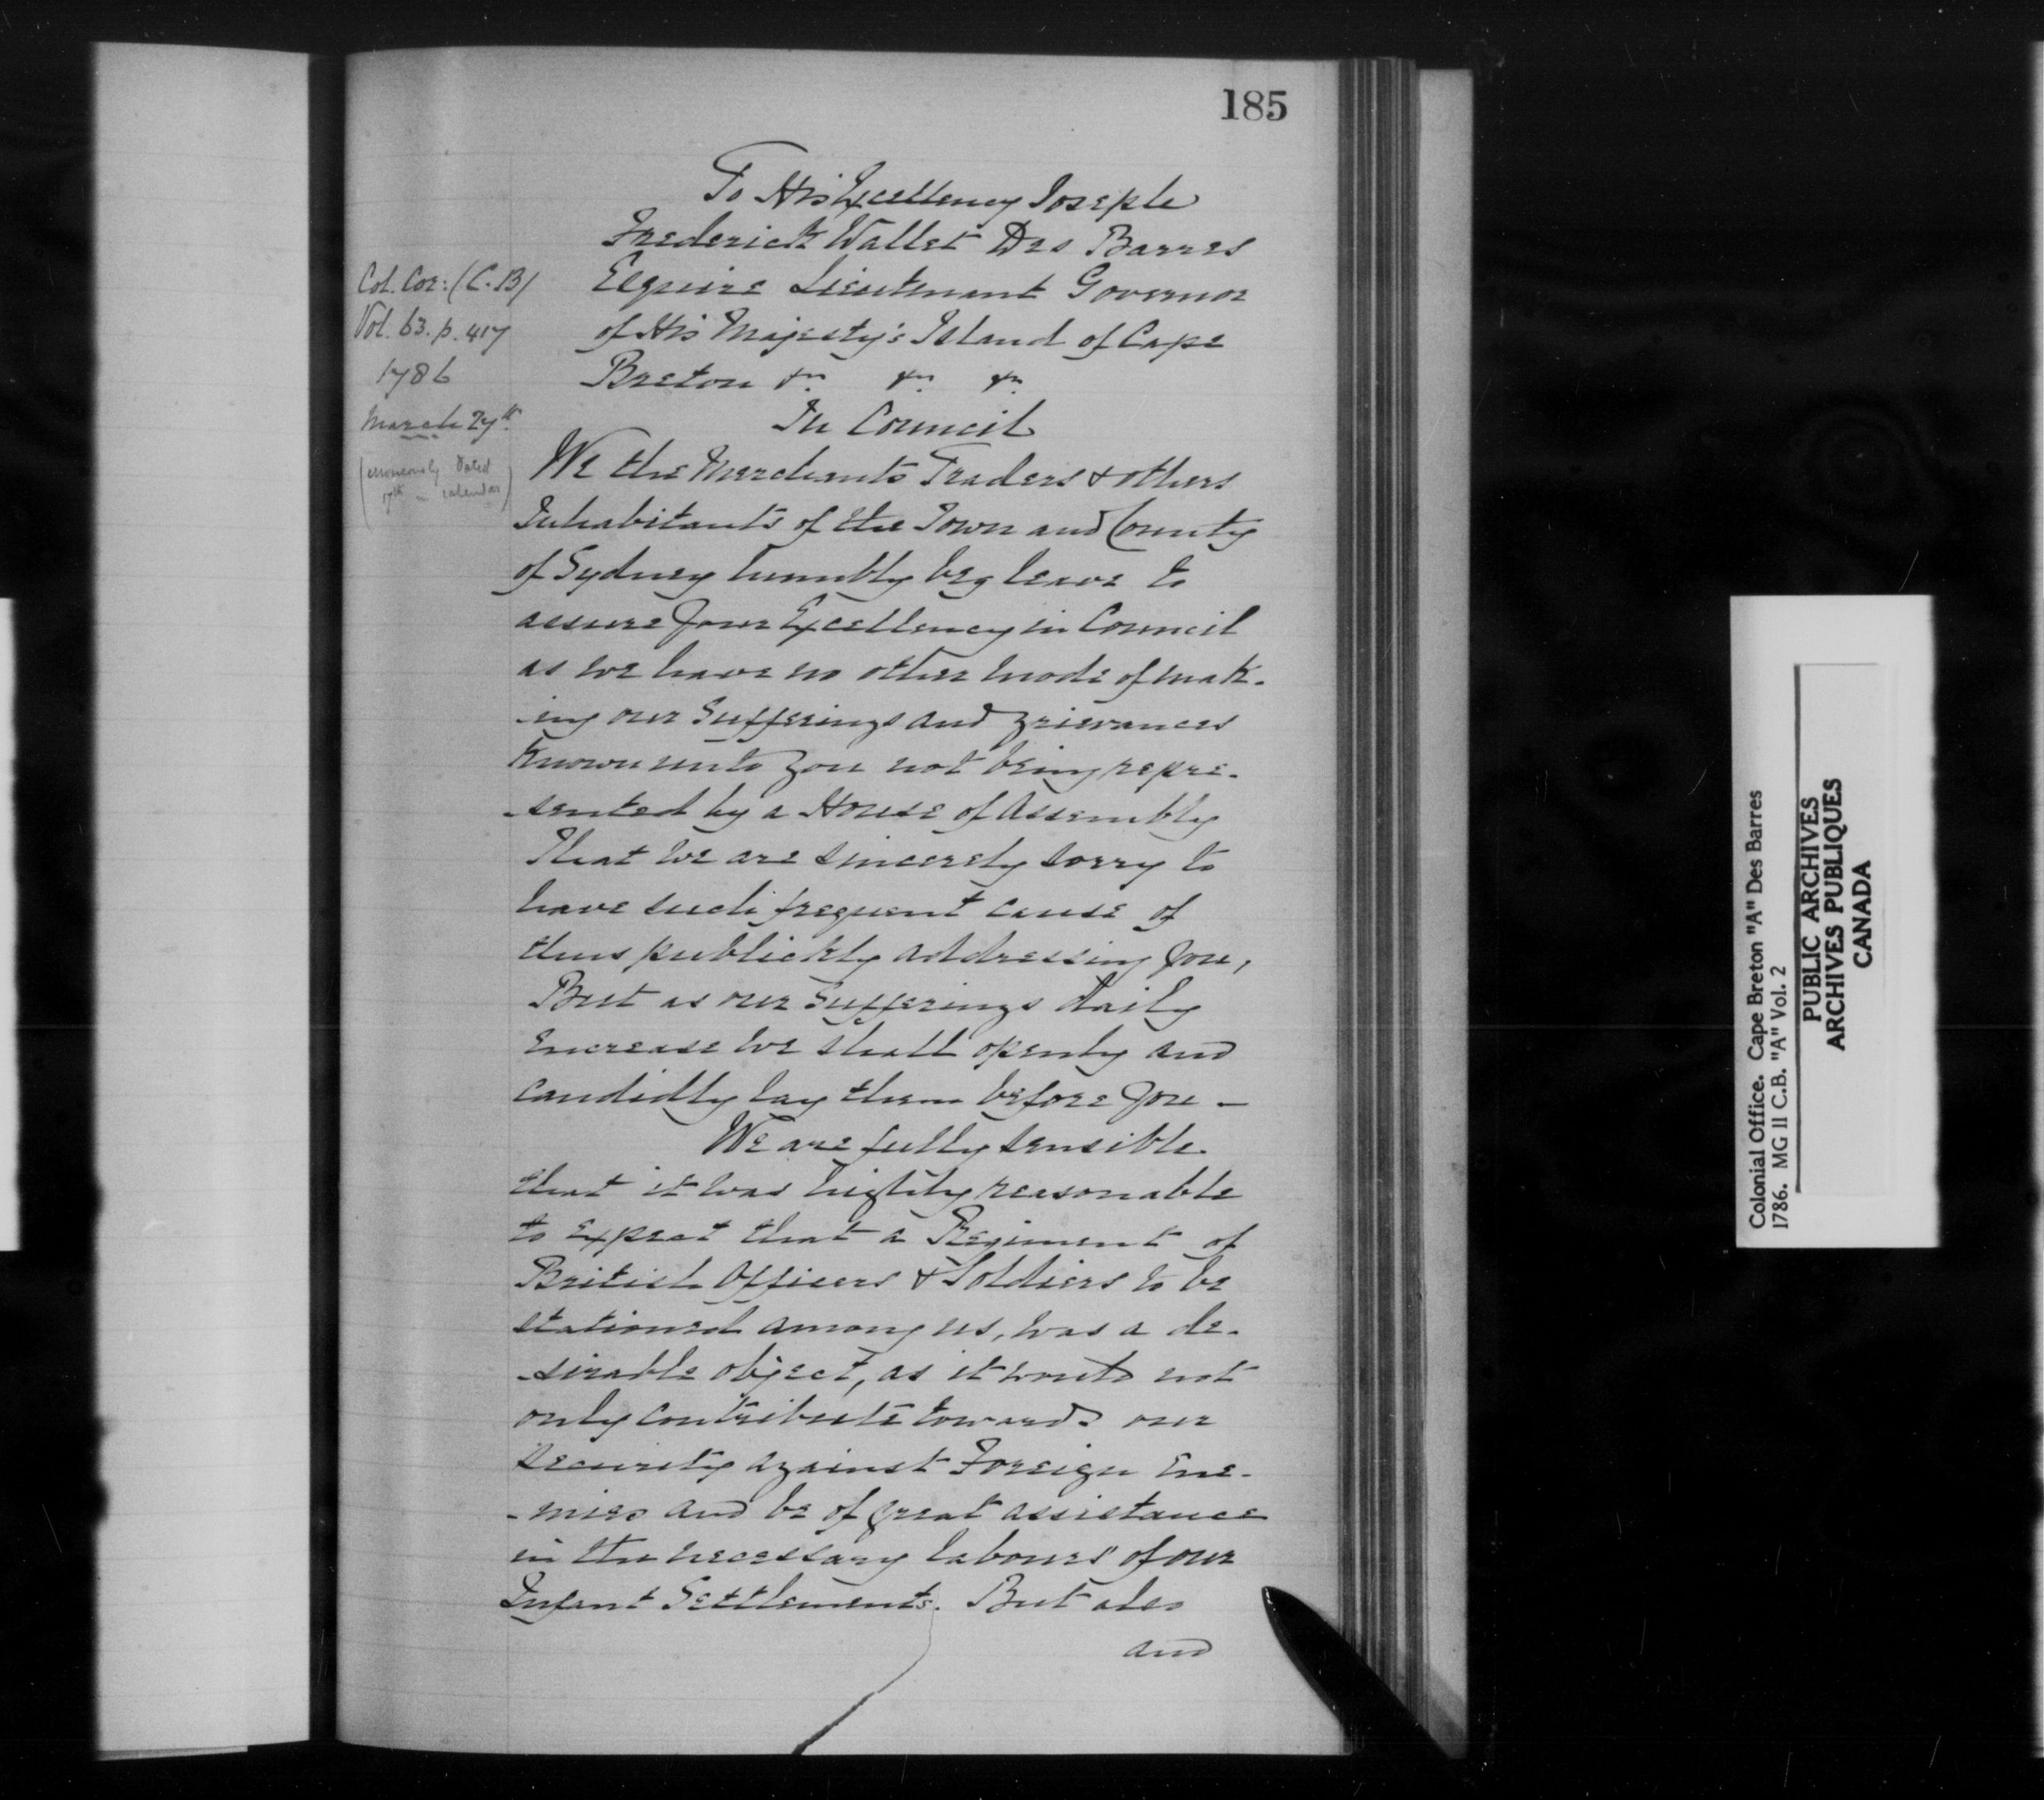 185
To His Excellency Joseph
Frederick Wallet Des Barres
Esquire Lieutenant Governor
of His Majesty's Island of Cape
Breton &c. &c. &c.
In Council
Col. Cor: (C.B)
Vol. 63. p. 417
1786
March 27th.
(erroneously dated
17th in calendar)
We the Merchants Traders & others
Inhabitants of the Town and County
of Sydney humbly beg leave to
assure Your Excellency in Council
as we have no other mode of mak-
-ing our Sufferings and grievances
known unto you not being repre-
-sented by a House of Assembly
That we are sincerely sorry to
have such frequent cause of
thus publickly addressing you,
But as our Sufferings daily
Encrease we shall openly and
candidly lay them before you –
We are fully sensible
that it was highly reasonable
to expect that a Regiment of
British Officers & Soldiers to be
stationed among us, was a de-
-sirable object, as it would not
only contribute towards our
security against Foreign Ene-
-mies and be of great assistance
in the necessary labours of our
Infant Settlements. But also
and
Colonial Office. Cape Breton "A" Des Barres
1786. MG II C.B. "A" Vol. 2
PUBLIC ARCHIVES
ARCHIVES PUBLIQUES
CANADA